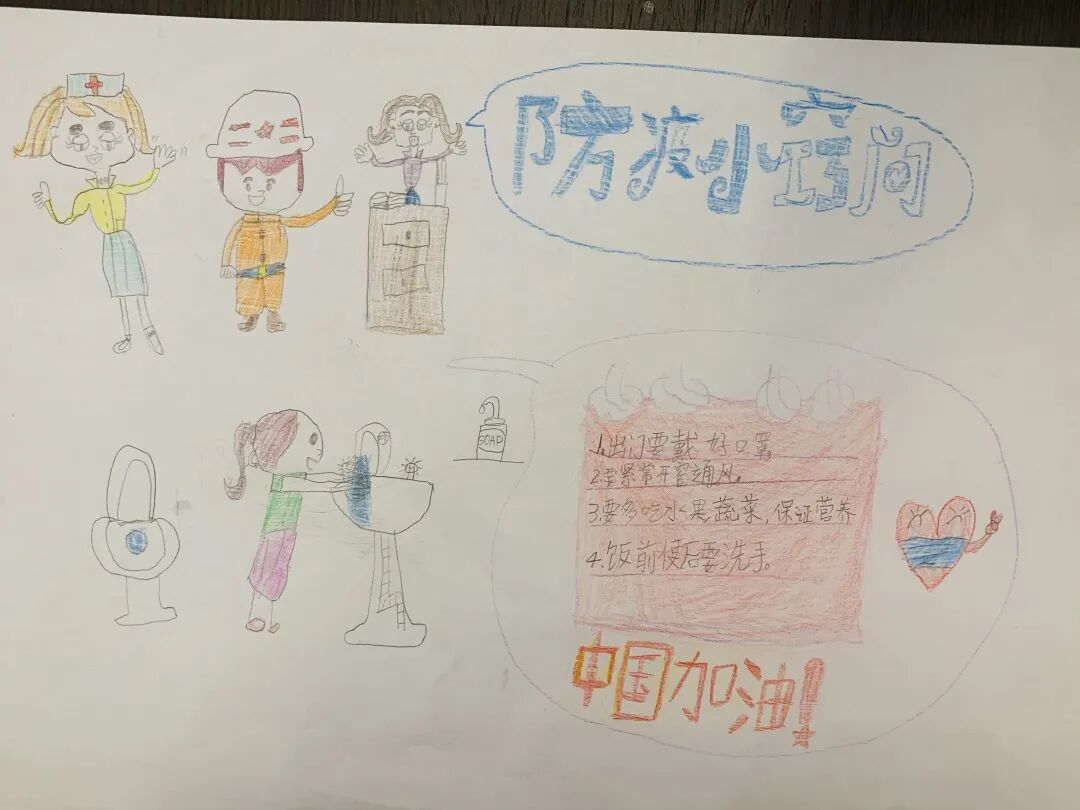 防疫小窍门
SOAP
1.出门要戴好口罩。
2.要紧常开窗通风。
3.要多吃水果蔬菜,保证营养
4.饭前便后要洗手。
中国加油!